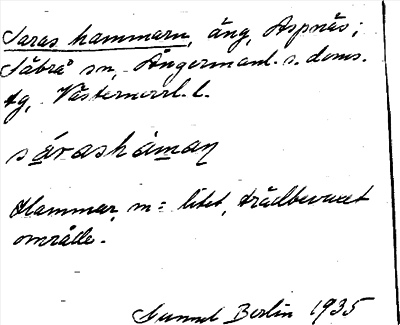 Saras hammarn, äng, Aspnäs;
Säbrå sn, Ångermanl. s. doms.
tg, Västernorrl. l.
sárashámaṇ
Hammar, m = litet, trädbevuxet
område.
Gunnel Berlin 1935